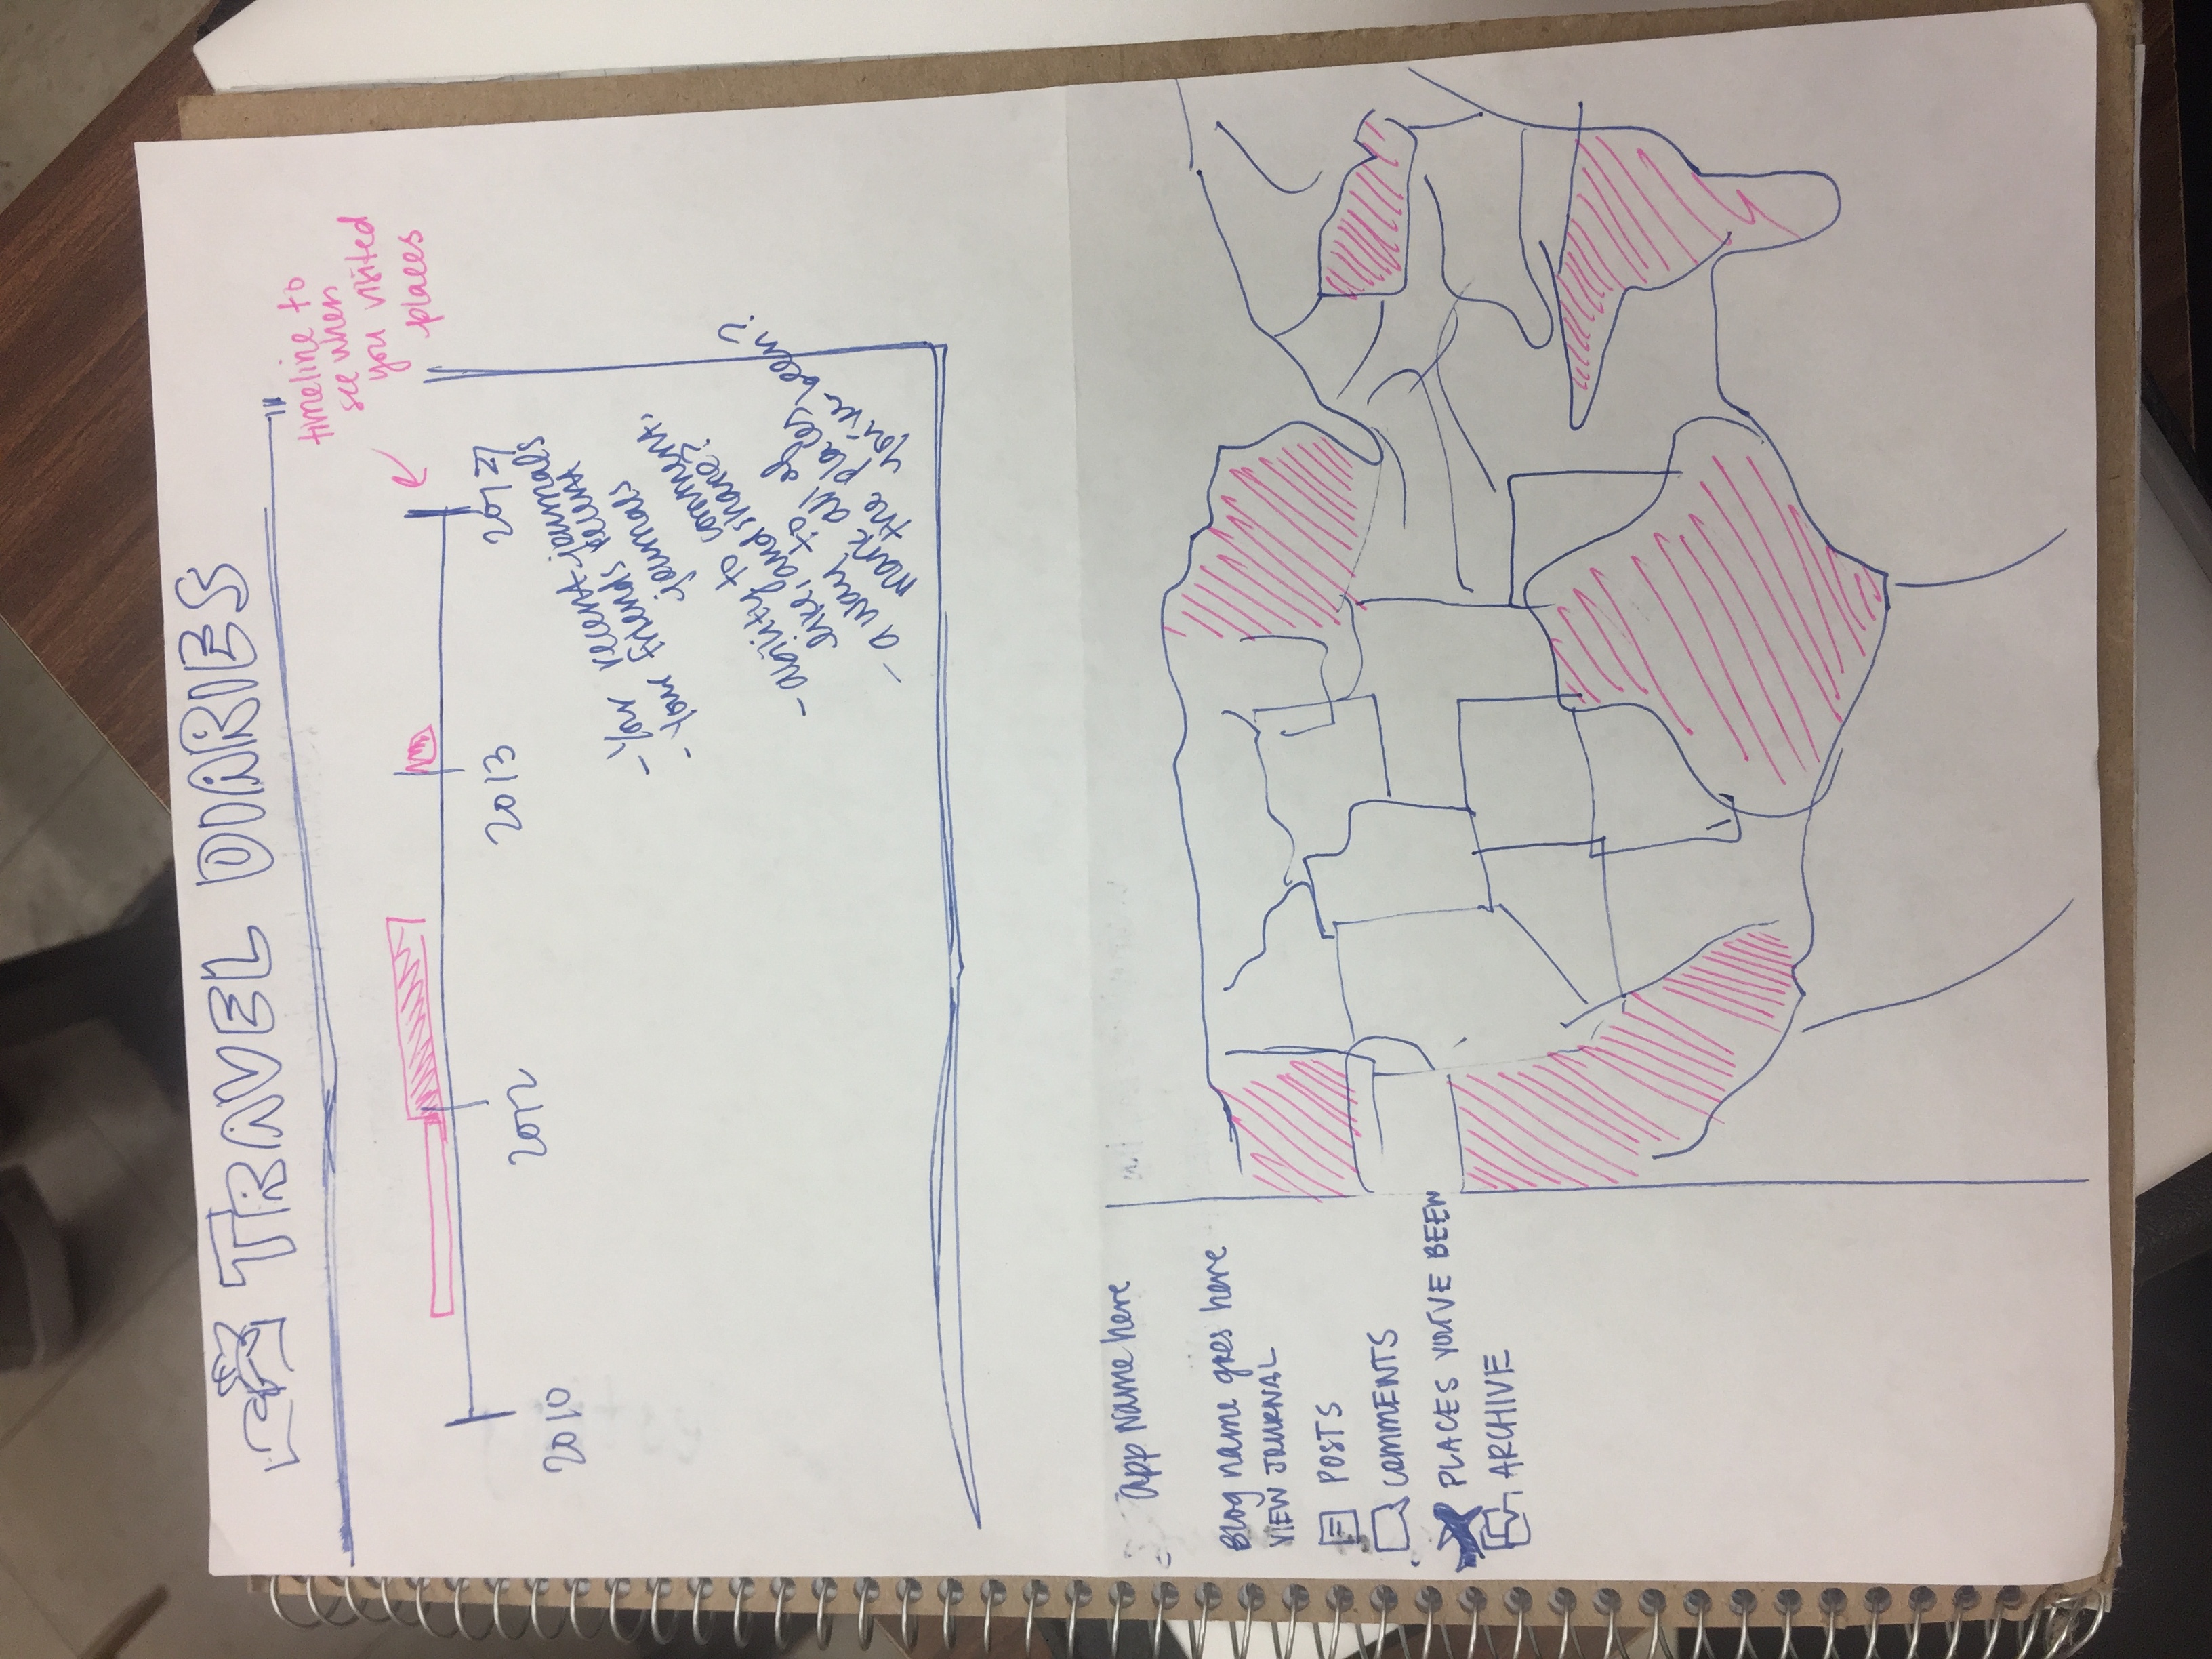 TRAVEL DIARIES
timeline to
see when
you visited
places
2010
2012
2013
- Your recent journals
- Your friends recent
journals
- ability to comment,
like, and share?
- a way to
mark all of
the places
you've been?
App Name here
Blog name goes here
VIEW JOURNAL
POSTS
COMMENTS
PLACES YOU'VE BEEN
ARCHIVE